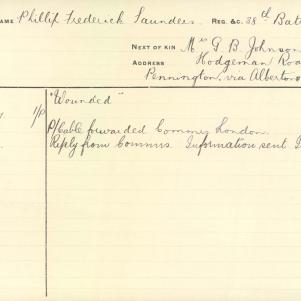 NAME Phillip Frederick Saunders. REG. &C. 38th Bat
NEXT OF KIN Mrs G B Johnson
ADDRESS Hodgeman Roa
Pennington, via Alberto
"Wounded"
1/P P/Cable forwarded Commrs London.
Reply from Commrs. Information sent